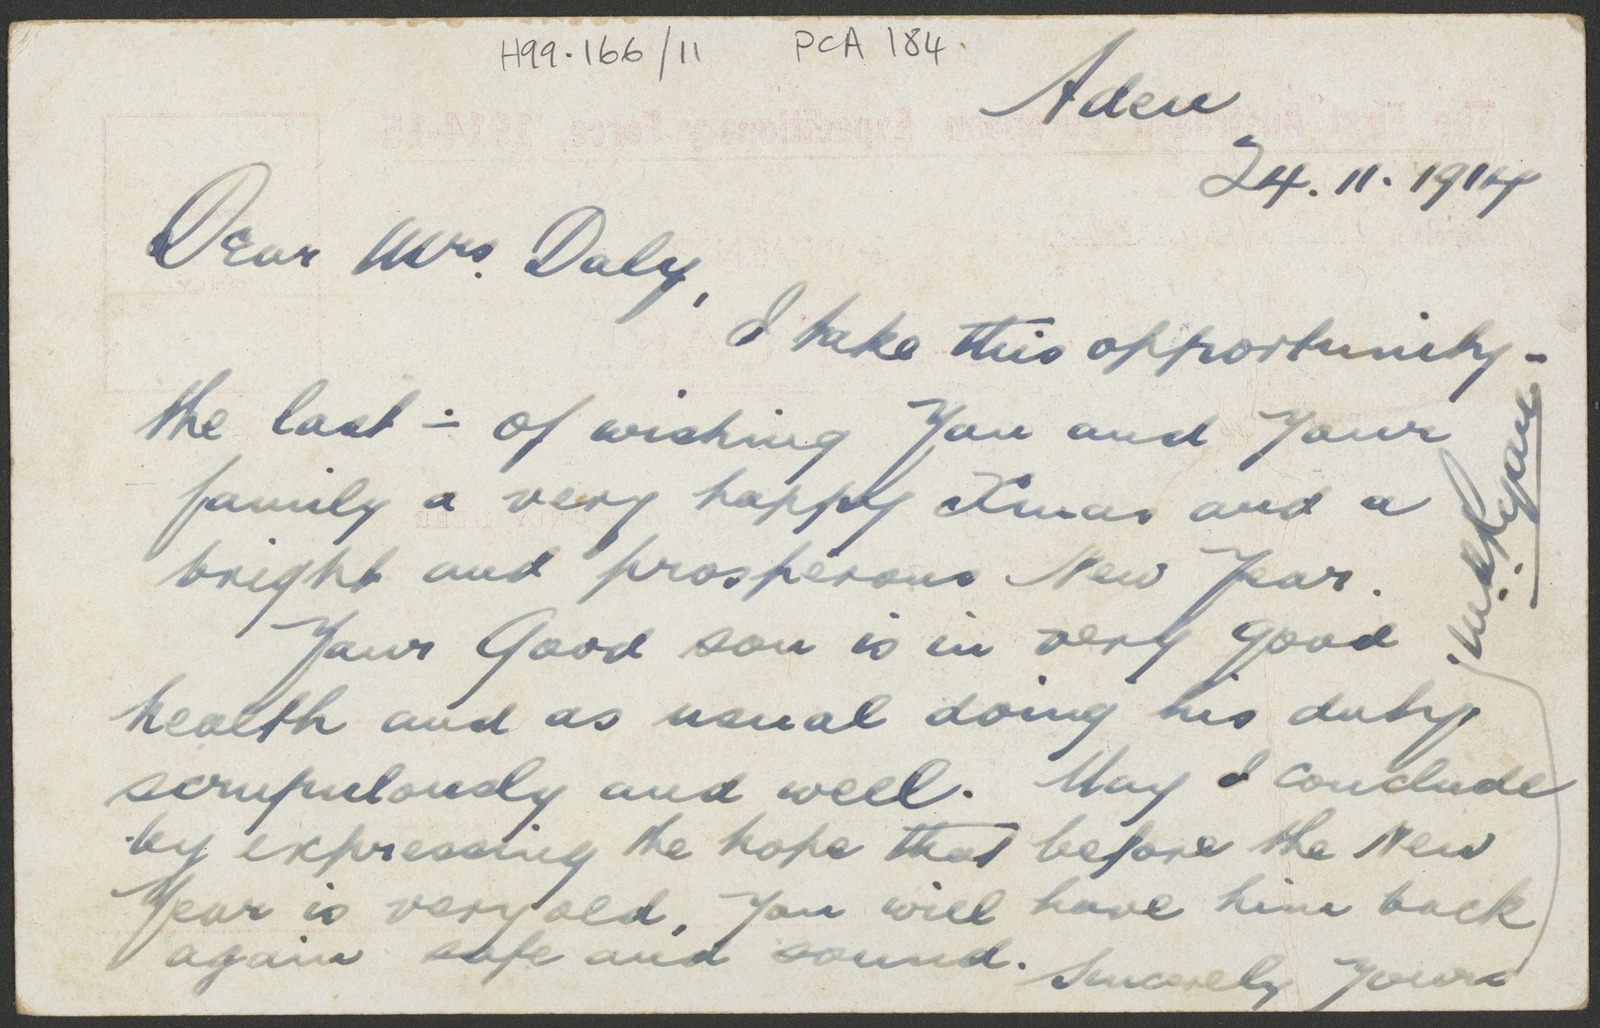 H99.166/11 PCA 184.
Aden
24.11.1914
Dear Mrs. Daly,
I take this opportunity -
the last - of wishing You and Your
family a very happy Xmas and a
bright and prosperous New Year.
Your Good son is in very good
health and as usual doing his duty
scrupulously and well. May I conclude
by expressing the hope that before the New
Year is very old, You will have him back
again safe and sound. Sincerely Yours